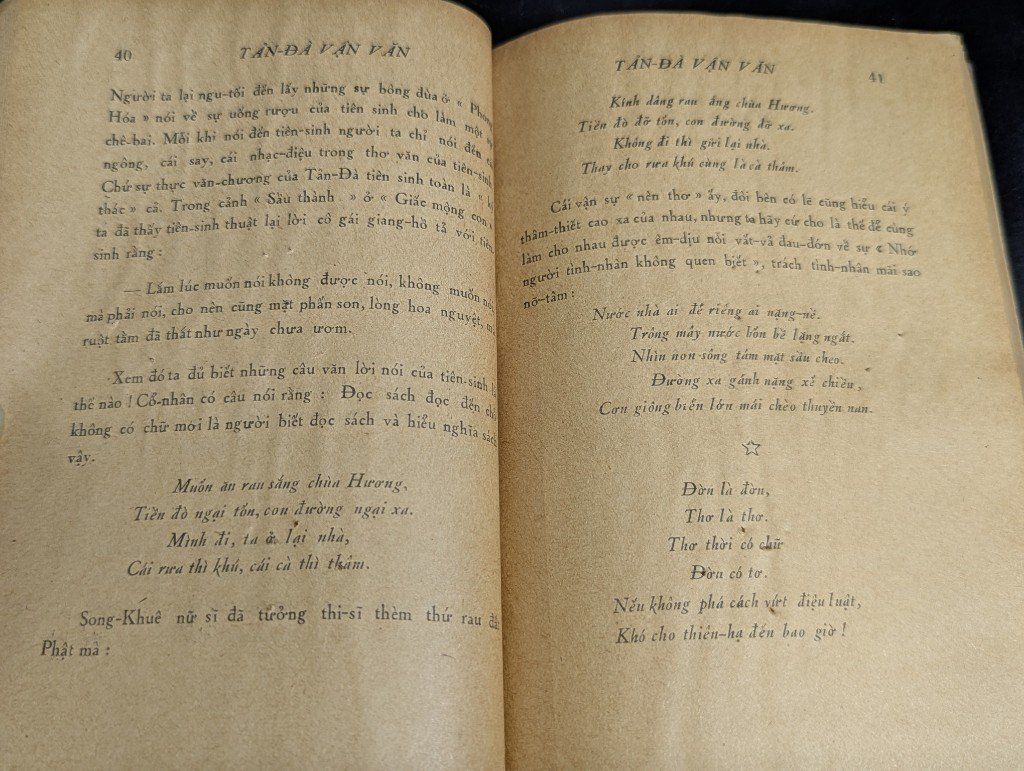 40 TẢN-ĐÀ VẬN VĂN
Người ta lại ngu-tối đến lấy những sự bông đùa ở « Phong
Hóa » nói về sự uống rượu của tiên sinh cho làm một
chê-bai. Mỗi khi nói đến tiên-sinh người ta chỉ nói đến
ngông, cái say, cái nhạc-điệu trong thơ văn của tiên-sinh
Chứ sự thực văn-chương của Tản-Đà tiên sinh toàn là «
thác » cả. Trong cảnh « Sầu thành » ở « Giấc mộng con »
ta đã thấy tiên-sinh thuật lại lời cô gái giang-hồ tả với tiên
sinh rằng :
— Lắm lúc muốn nói không được nói, không muốn nói
mà phải nói, cho nên cũng mặt phấn son, lòng hoa nguyệt, mà
ruột tằm đã thắt như ngày chưa ươm.
Xem đó ta đủ biết những câu văn lời nói của tiên-sinh là
thế nào ! Cổ-nhân có câu nói rằng : Đọc sách đọc đến chỗ
không có chữ mới là người biết đọc sách và hiểu nghĩa sách
vậy.
Muốn ăn rau sắng chùa Hương,
Tiền đò ngại tốn, con đường ngại xa.
Mình đi, ta ở lại nhà,
Cái rưa thì khú, cái cà thì thâm.
Song-Khuê nữ sĩ đã tưởng thi-sĩ thèm thứ rau đất
Phật mà :
TẢN-ĐÀ VẬN VĂN 41
Kính dâng rau sắng chùa Hương.
Tiền đò đỡ tốn, con đường đỡ xa.
Không đi thì gửi lại nhà.
Thay cho rưa khú cùng là cà thâm.
Cái vận sự « nên thơ » ấy, đôi bên có lẽ cũng hiểu cái ý
thâm-thiết cao xa của nhau, nhưng ta hãy cứ cho là thế để cùng
làm cho nhau được êm-dịu nỗi vất-vả đau-đớn về sự « Nhớ
người tình-nhân không quen biết », trách tình-nhân mãi sao
nỡ-tâm :
Nước nhà ai để riêng ai nặng-nề.
Trông mây nước bốn bề lặng ngắt.
Nhìn non-sông tám mặt sầu cheo.
Đường xa gánh nặng xế chiều,
Cơn giông biển lớn mái chèo thuyền nan.
Đờn là đờn,
Thơ là thơ.
Thơ thời có chữ
Đờn có tơ.
Nếu không phá cách vứt điệu luật,
Khó cho thiên-hạ đến bao giờ !